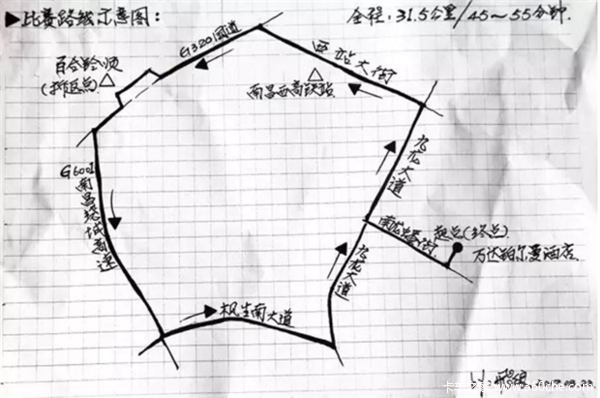 ▶比赛路线示意图:
全程:31.5公里/45~55分钟.
G320国道
西站大街
百合铃顺
南昌西高铁站
九龙大道
G6001南昌绕城高速
起点(终点)
万达铂尔曼酒店
九龙大道
枫生南大道